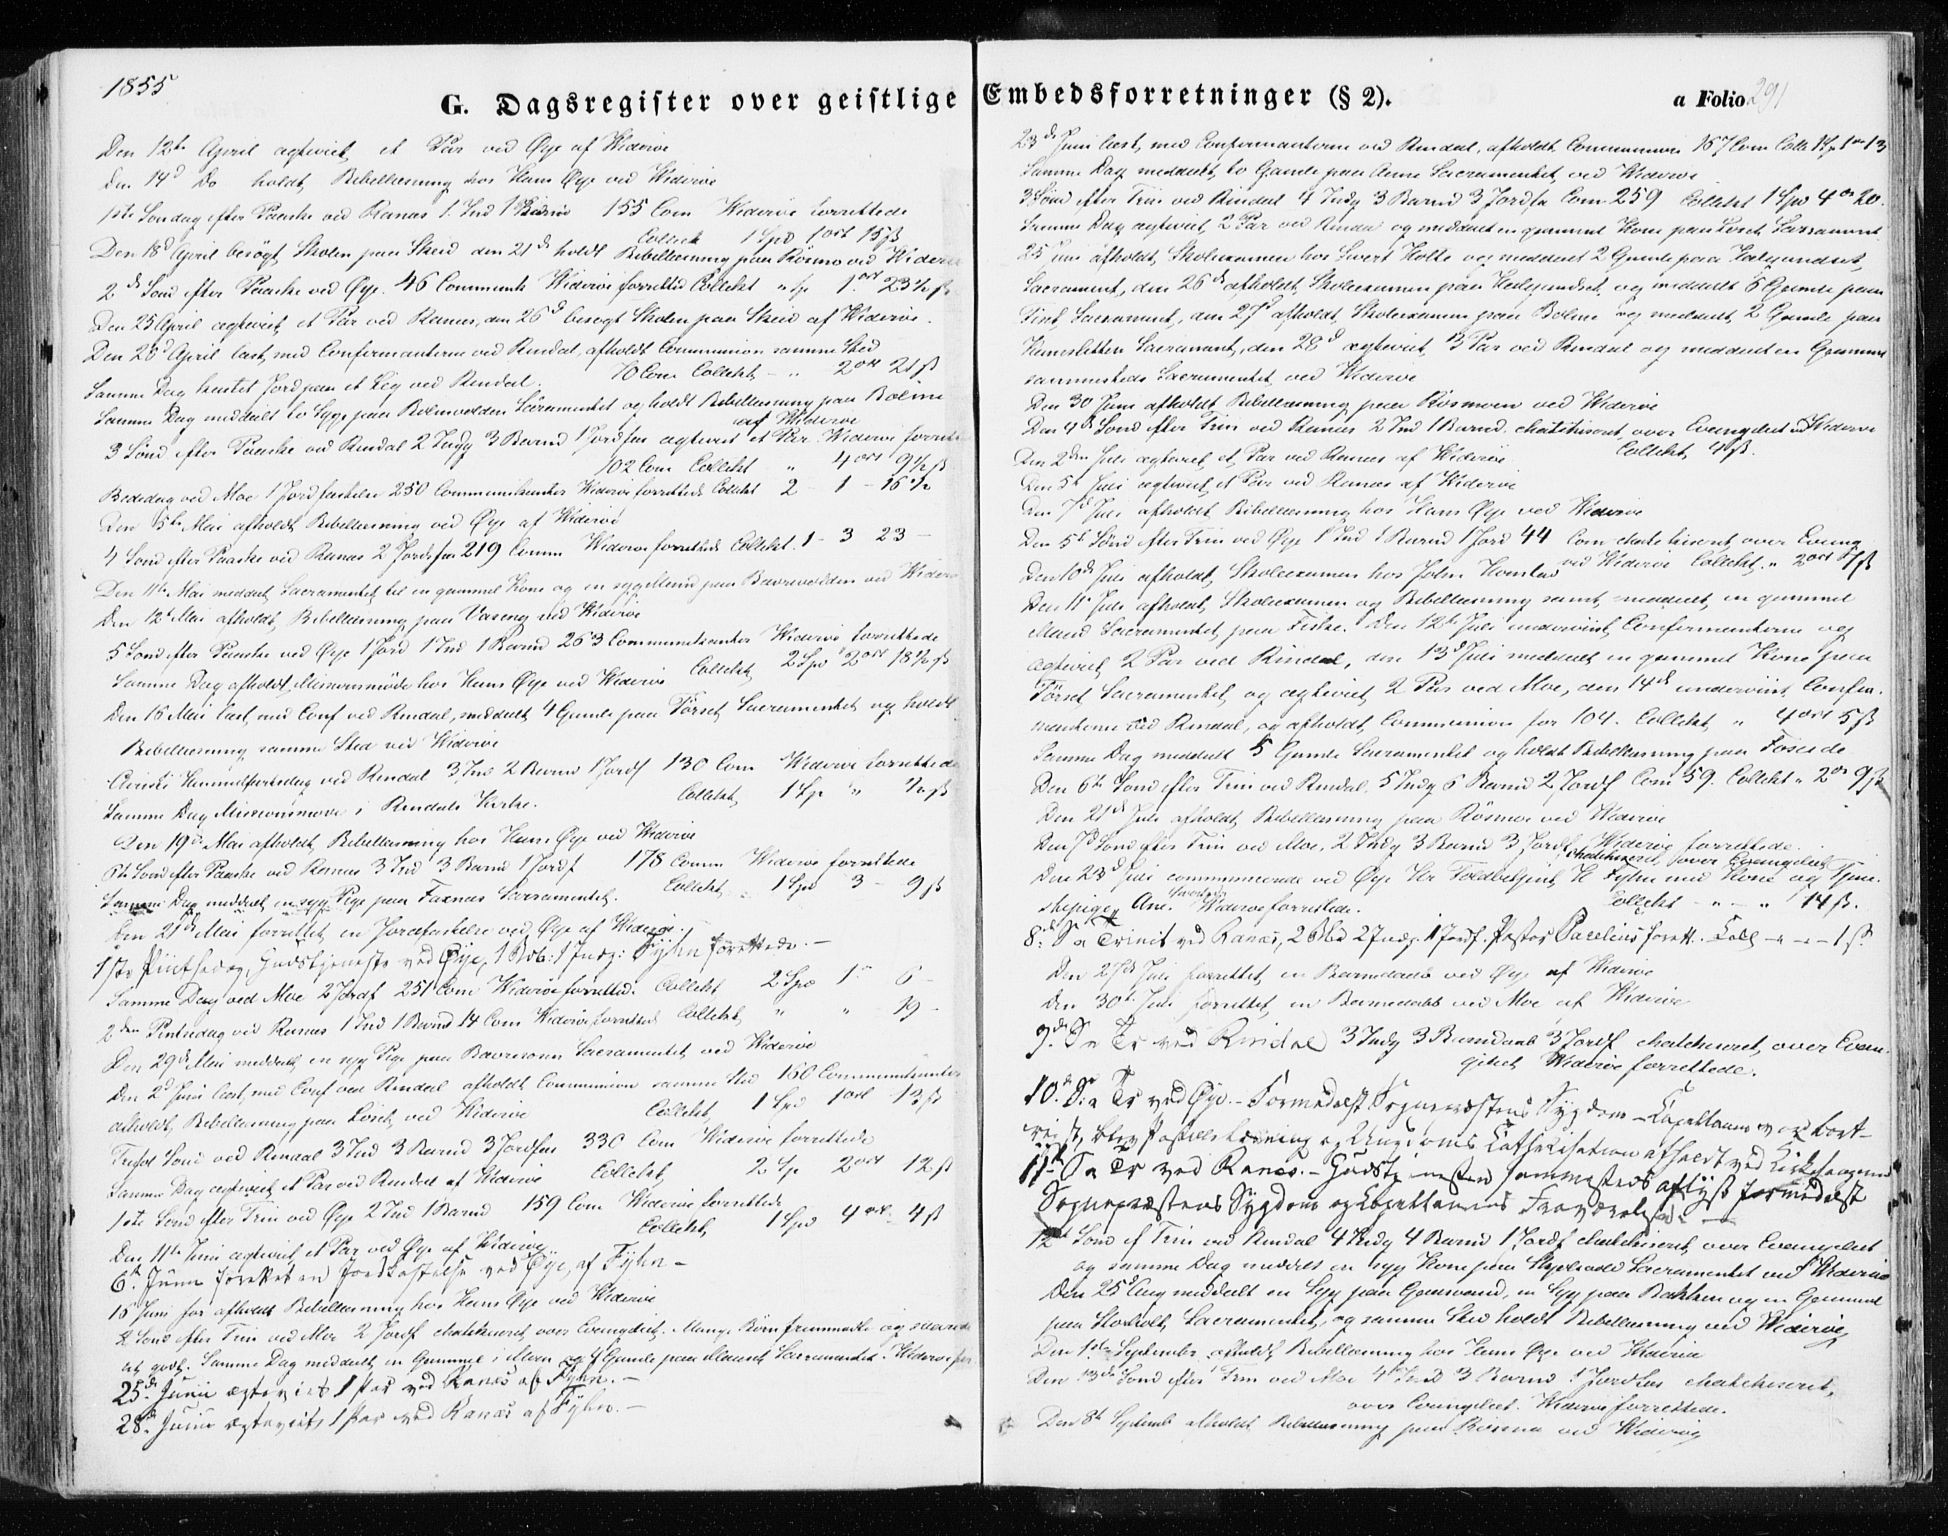 1855
G. Dagsregister over geistlige Embedsforretninger (§ 2).
a Folio 291
Den 12te April ægteviet et Par ved Øye af Widerøe
den 14d Do holdt Bibellæsning hos Hans Øye ved Widerøe
1ste Søndag efter Paaske ved Ranæs 1 Ind 155 Com Widerøe forrettede
Collect 1 Spd 1 ort 15 ß
Den 18d April besøgt Skolen paa Skeid den 21de holdt Bibellæsning paa Rösmo ved Widerøe
2de Sönd efter Paaske ved Øye. 46 Communik Widerøe forrettede Collekt 1 ort 23 ½ ß
Den 25 April ægteviet et Par ved Ranæs, den 26d besøgt Skolen paa Skeid af Widerøe.
Den 28d April læst med Confirmanterne ved Rindal, afholdt Communion samme Sted
70 Com Collekt - " 2 ort 21 ß
Samme Dag kastet Jord paa et Lig ved Rindal.
Samme Dag meddeelt to Syge paa Bolmevolden Sacramentet og holdt Bibellæsning paa Bolme
af Widerøe
3 Sönd efter Paaske ved Rindal 2 Indg 3 Barnd 1 Jordfæ ægteviet et Par. Widerøe forrett
102 Com Collekt " 4 ort 9 ½ ß
Bededag ved Moe 1 Jordfæstelse 250 Communikanter Widerøe forrettede Collekt 2 - 1 - 16 ½
Den 5te Mai afholdt Bibellæsning ved Øye af Widerøe
4 Sönd efter Paaske ved Ranæs 2 Jordfæ 219 Comm Widerøe forrettede Collekt 1 - 3 23 -
Den 11te Mai meddeelt Sacramentet til en gammel Kone og en sygeblind paa Bævrevolden ved Widerøe
Den 12te Mai afholdt Bibellæsning paa Vaseng ved Widerøe
5 Sönd efter Paaske ved Øye 1 Jord 1 Ind 1 Barnd 263 Communikanter Widerøe forrettede
Collekt 2 Spd 2 ort 18 ½ ß
Samme Dag afholdt Missionsmöde hos Hans Øye ved Widerøe
Den 16 Mai læst med Conf ved Rindal, meddeelt 4 Gamle paa Törset Sacramentet og holdt
Bibellæsning samme Sted ved Widerøe
Christi Himmelfartsdag ved Rindal 3 Ind 2 Barnd 1 Jordf 130 Com Widerøe forrettede
Collekt 1 Sp " ½ ß
Samme Dag Missionsmøde i Rindals Kirke.
Den 19de Mai afholdt Bibellæsning hos Hans Øye ved Widerøe
6te Sönd efter Paaske ved Ranæs 3 Ind 3 Barnd 1 Jordf 178 Comm Widerøe forrettede
Collekt 1 Spd 3 - 9 ß
Samme Dag meddeelt en syg Pige paa Faxnes Sacramentet.
Den 21de Mai forrettet en Jordfæstelse ved Øye af Widerøe.
1ste Pintsedag, Gudstjeneste ved Øye, 1 Brb: 1 Indg: Fyhn forrettede. -
Samme Dag ved Moe 2 Jordf 251 Com Widerøe forrettede. Collekt 2 Spd 1 " 6 -
2den Pintsedag ved Ranæs 1 Ind 1 Barnd 14 Com Widerøe forrettede Collekt " " 19 -
Den 29de Mai meddeelt en syg Pige paa Bævremoen Sacramentet ved Widerøe
Den 2d Juni læst med Conf ved Rindal afholdt Communion samme Sted 160 Communikanter
Collekt 1 Spd 1 ort 13 ß
afholdt Bibellæsning paa Löset ved Widerøe
Trefol Sönd ved Rindal 3 Ind 3 Barnd 3 Jordfæs 330 Com Widerøe forrettede
Collekt 2 Sp 2 ort 12 ß
Samme Dag ægteviet et Par ved Rindal af Widerøe
1ste Sönd efter Trin ved Øye 2 Ind 1 Barnd 159 Com Widerøe forrettede
Collekt 1 Spd 4 ort 4 ß
Den 11te Juni ægteviet et Par ved Øye af Widerøe
6te Junii forrettet en Jordfæstelse ved Øye, af Fyhn -
15 Juni for afholdt Bibellæsning hos Hans Øye ved Widerøe
2 Sönd efter Trin ved Moe 2 Jordf chatekiseret over Evangeliet. Mange Börn fremmödte og svarede
ret godt. Samme Dag meddeelt en Gammel i Moen og 4 Gamle paa Sacramentet. Widerøe for
25de Junii ægteviet 1 Par ved Ranæs af Fyhn. -
28de Junii ægteviet 1 Par ved Ranæs af Fyhn. -
23de Juni læst med Confirmanterne ved Rindal, afholdt Communion 167 Com Coll 1 Sp 1 ort 13
Samme Dag meddeelt to Gamle paa Sacramentet ved Widerøe
3 Sönd efter Trin ved Rindal 4 Indg 3 Barnd 3 Jordfæ Com 259 Collekt 1 Spd 4 ort 20.
Samme Dag ægteviet 2 Par ved Rindal og meddeelt en gammel Kone paa Löset Sacrament
25 Juni afholdt Skoleexamen hos Sivert Holte og meddeelt 2 Gamle paa Helgundset
Sacrament, den 26de afholdt Skoleexamen paa Helgundset og meddeelt 6 Gamle paa
Tiset Sacrament, den 27d afholdt Skoleexamen paa Bolme og meddeelt 2 Gamle paa
Sacrament, den 28d ægteviet 3 Par ved Rindal og meddeelt en Gammel
sammesteds Sacramentet ved Widerøe
Den 30 Juni afholdt Bibellæsning paa Rösmoen ved Widerøe
Den 4de Sönd efter Trin ved Ranæs 2 Ind 1 Barnd. chatekiseret over Evangeliet ved Widerøe
Collekt 4 ß.
Den 2den Juli ægteviet et Par ved Ranæs af Widerøe
Den 5te Juli ægteviet et Par ved Ranæs af Widerøe
Den 7d Juli afholdt Bibellæsning hos Hans Øye ved Widerøe
Den 5te Sönd efter Trin ved Øye 1 Ind 1 Barnd 1 Jord 44 Com chatekiseret over Evang
ved Widerøe Collekt " 2 ort 5 ß
Den 10de Juli afholdt Skoleexamen hos John
Den 11te Juli afholdt Skoleexamen og Bibellæsning samt meddeelt en gammel
Mand Sacramentet paa Fiske. Den 12te Juli underviist Confirmanterne og
ægteviet 2 Par ved Rindal, den 13d Juli meddeelt en gammel Kone paa
Törset Sacramentet og ægteviet 2 Par ved Moe, den 14de underviist Confir-
manterne ved Rindal, og afholdt Communion for 104. Collekt " 4 ort 5 ß
Samme Dag meddeelt 5 Gamle Sacramentet og holdt Bibellæsning paa
Den 6te Sönd efter Trin ved Rindal. 5 Indg 6 Barnd 2 Jordf Com 59. Collekt " 2 ort 9 ß
Den 21de Juli afholdt Bibellæsning paa Rösmoe ved Widerøe
Den 7d Sönd efter Trin ved Moe, 2 Indg 3 Barnd 3 Jordf, Widerøe forrettede.
chatekiseret over Evangeliet
Den 23d Juli communicerede ved Øye Hr Foldbetjent H Fyhn med Kone og Tjene-
stepige Ane. Widerøe forrettede. Collekt - " - " 14 ß.
8de S. a Trinit ved Ranæs, 2 Bbd 2 Indg. 1 Jordf. Pastor Parelius forrett. Coll - " - " - 1 ß
Den 27de Juli forrettet en Barnedaab ved Øye af Widerøe
Den 30te Juli forrettet en Barnedaab ved Moe af Widerøe
9de S. a Tr ved Rindal 3 Indg 3 Barndaab 3 Jordf chatekiseret over Evan-
geliet Widerøe forrettede.
10de S. a Tr ved Øye. - Formedelst Sognepræstens Sygdom - Capellanen var bort-
reist, blev Postillelæsning og Ungdoms Catechisation afholdt ved Kirkesangeren
11te S. a Tr ved Ranæs. - Gudstjenesten sammesteds aflyst formedelst
Sognepræstens Sygdom og Capellanens Fraværelse. -
12te Sönd ef Trin ved Rindal 4 Indg 4 Barnd 1 Jordf chatekiseret over Evangeliet
og samme Dag meddelt en syg Kone paa Sacramentet ved Widerøe
Den 25d Aug meddeelt en Syg paa Grønvand, en Syg paa Bakken og en Gammel
paa Storholt Sacramentet, og samme Sted holdt Bibellæsning ved Widerøe
Den 1ste September afholdt Bibellæsning hos Hans Øye ved Widerøe
Den 13de Sönd efter Trin ved Moe 4 Ind 3 Barnd 1 Jordfæs chatekiseret
over Evangeliet. Widerøe forrettede.
Den 8te Septemb afholdt Bibellæsning paa Rösmo ved Widerøe